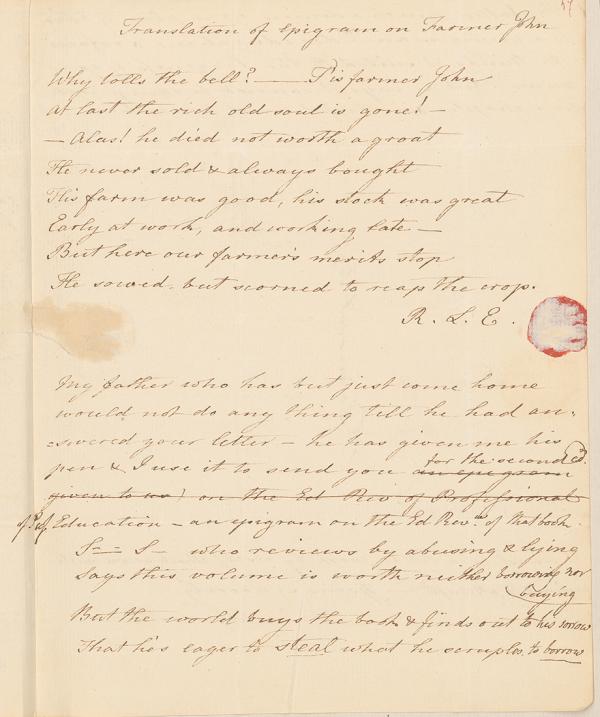 Translation of Epigram on Farmer John
Why tolls the bell? — 'Tis farmer John
At last the rich old soul is gone! —
— Alas! he died not worth a groat
He never sold & always bought
His farm was good, his stock was great
Early at work, and working late —
But here our farmer's merits stop
He sowed - but scorned to reap the crop.
R. L. E.
My father who has but just come home
would not do any thing till he had an=
=swered your letter — he has given me his
pen & I use it to send you an epigram for the second Ed.
given to us) on the Ed Rev of Professional
of Prof Education — an epigram on the Ed Revw. of that book.
S== S— who reviews by abusing & lying
Says this volume is worth neither borrowing nor
buying
But the world buys the book & finds out to his sorrow
That he's eager to steal what he scruples to borrow